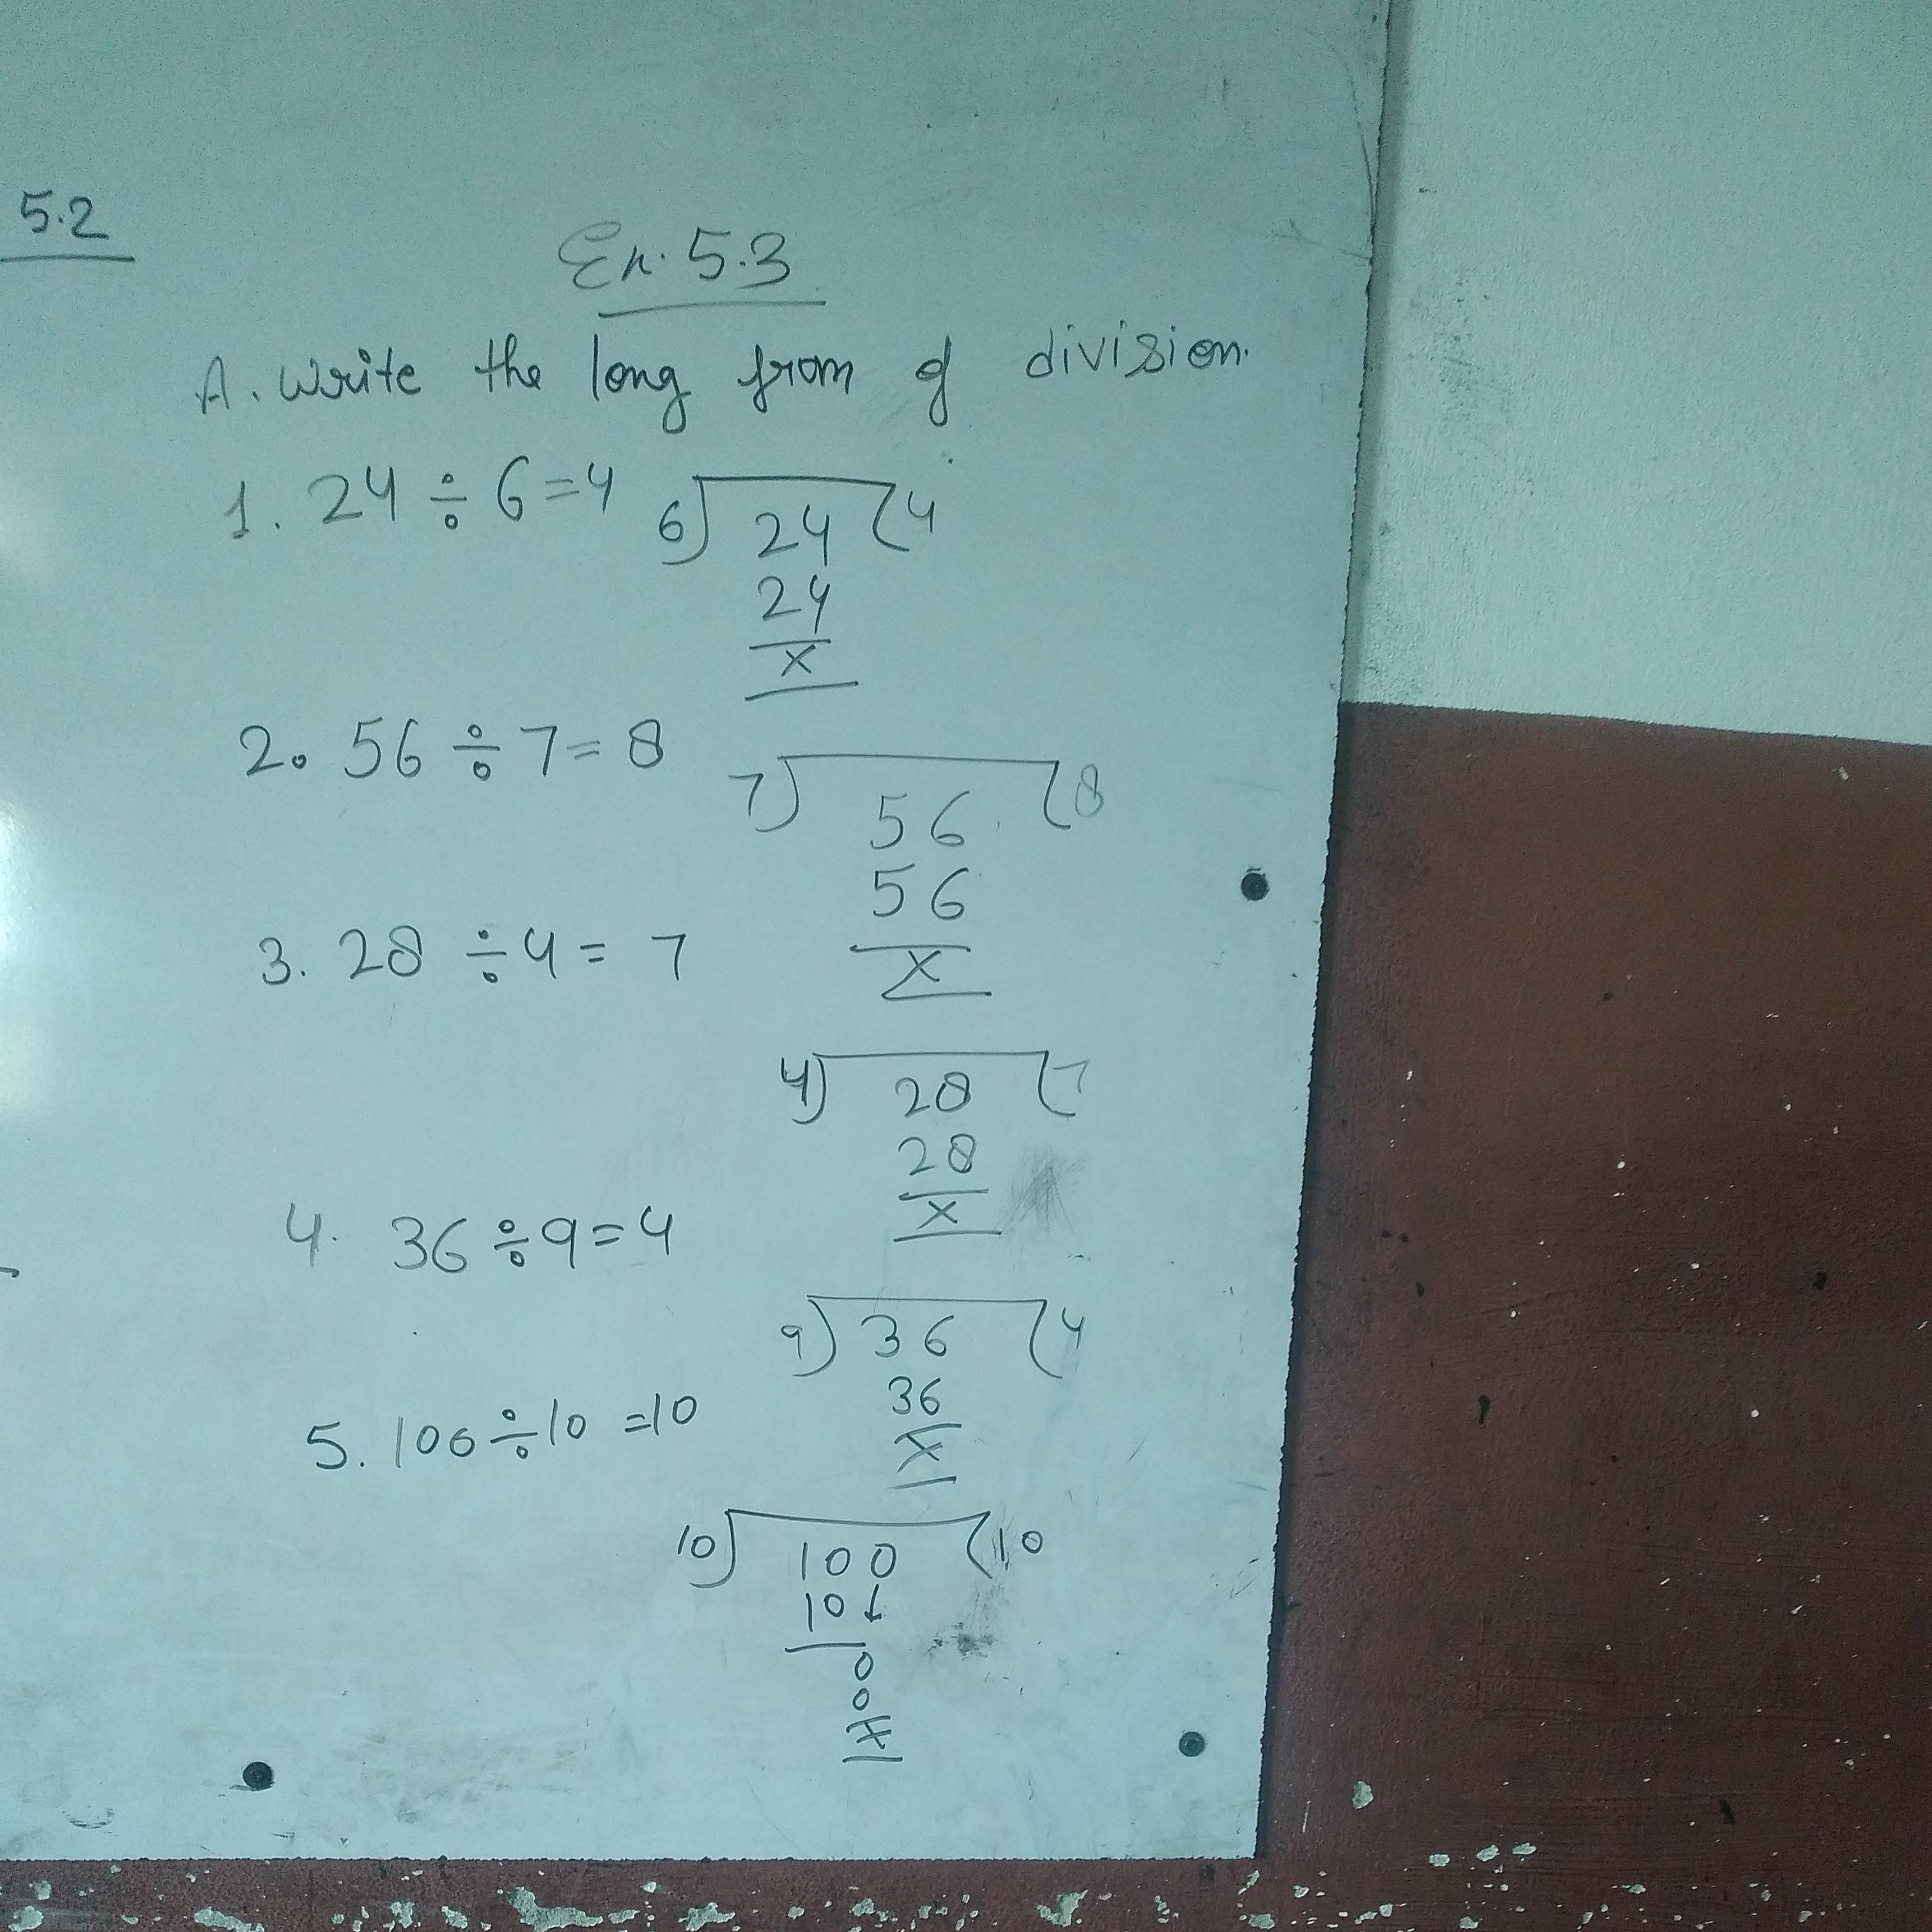 5.2
Ex. 5.3
A. Write the long from of division.
1. 24 ÷ 6 = 4
6) 24 (4
24
x
2. 56 ÷ 7 = 8
7) 56 (8
56
x
3. 28 ÷ 4 = 7
4) 28 (7
28
x
4. 36 ÷ 9 = 4
9) 36 (4
36
x
5. 100 ÷ 10 = 10
10) 100 (10
10↓
0
0
x